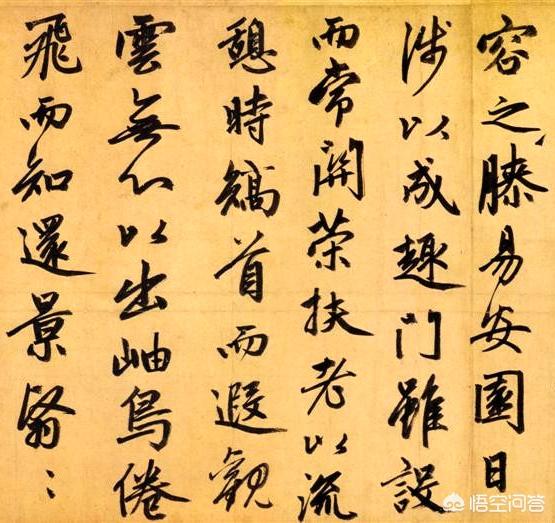 容之膝易安園日
涉以成趣門雖設
而常關策扶老以流
憩時矯首而遐觀
雲無心以出岫鳥倦
飛而知還景翳〻
悟空问答